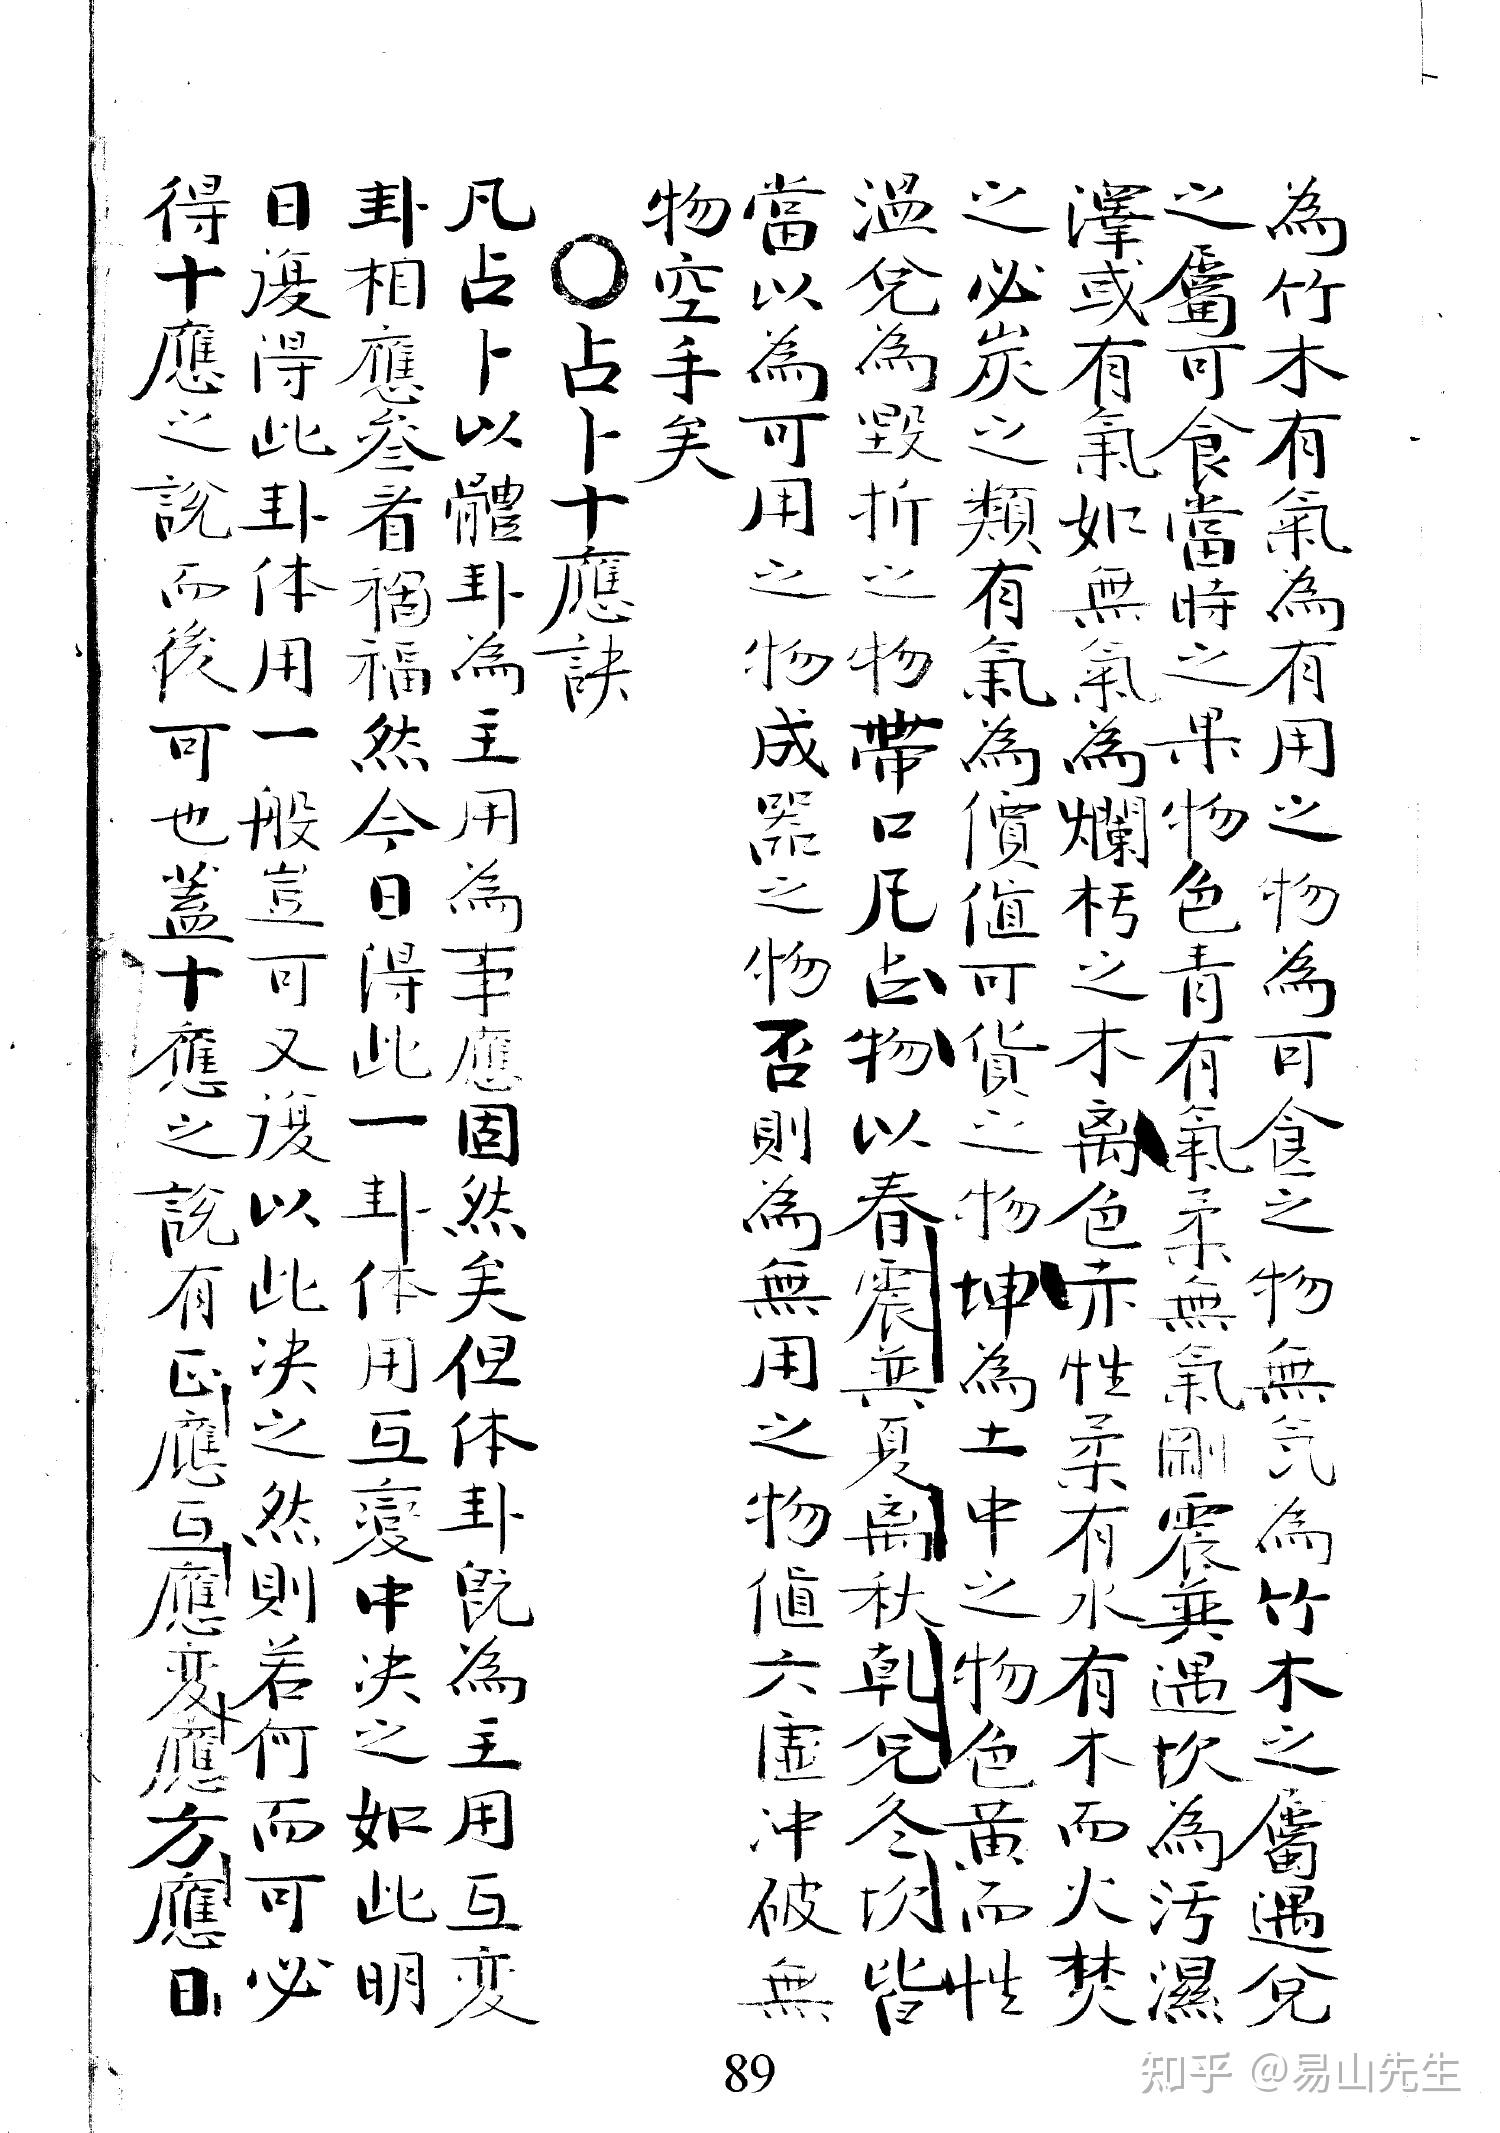 為竹木有氣為有用之物為可食之物無氕為竹木之屬遇兌
之屬可食當時之果物色青有氣柔無氣剛震巽遇坎為汚濕
澤或有氣如無氣為爛朽之木离色赤性柔有水有木而火焚
之必炭之類有氣為價値可貨之物坤為土中之物色黃而性
温兌為毀折之物帶口凡占物以春震巽夏离秋乾兌冬坎皆
當以為可用之物成器之物否則為無用之物値六虛冲破無
物空手矣
〇占卜十應訣
凡占卜以體卦為主用為事應固然矣但体卦旣為主用互変
卦相應叅看禍福然今日得此一卦体用互變中决之如此明
日復得此卦体用一般豈可又復以此决之然則若何而可必
得十應之說而後可也蓋十應之說有正應互應変應方應日
89
知乎 @易山先生